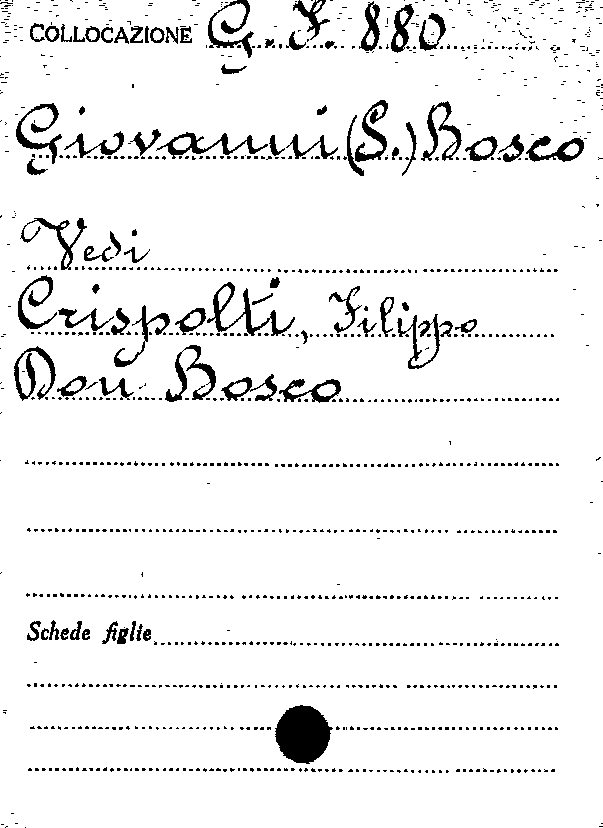 COLLOCAZIONE G. F. 880
Giovanni (S.) Bosco
Vedi
Crispolti, Filippo
Don Bosco
Schede figlie